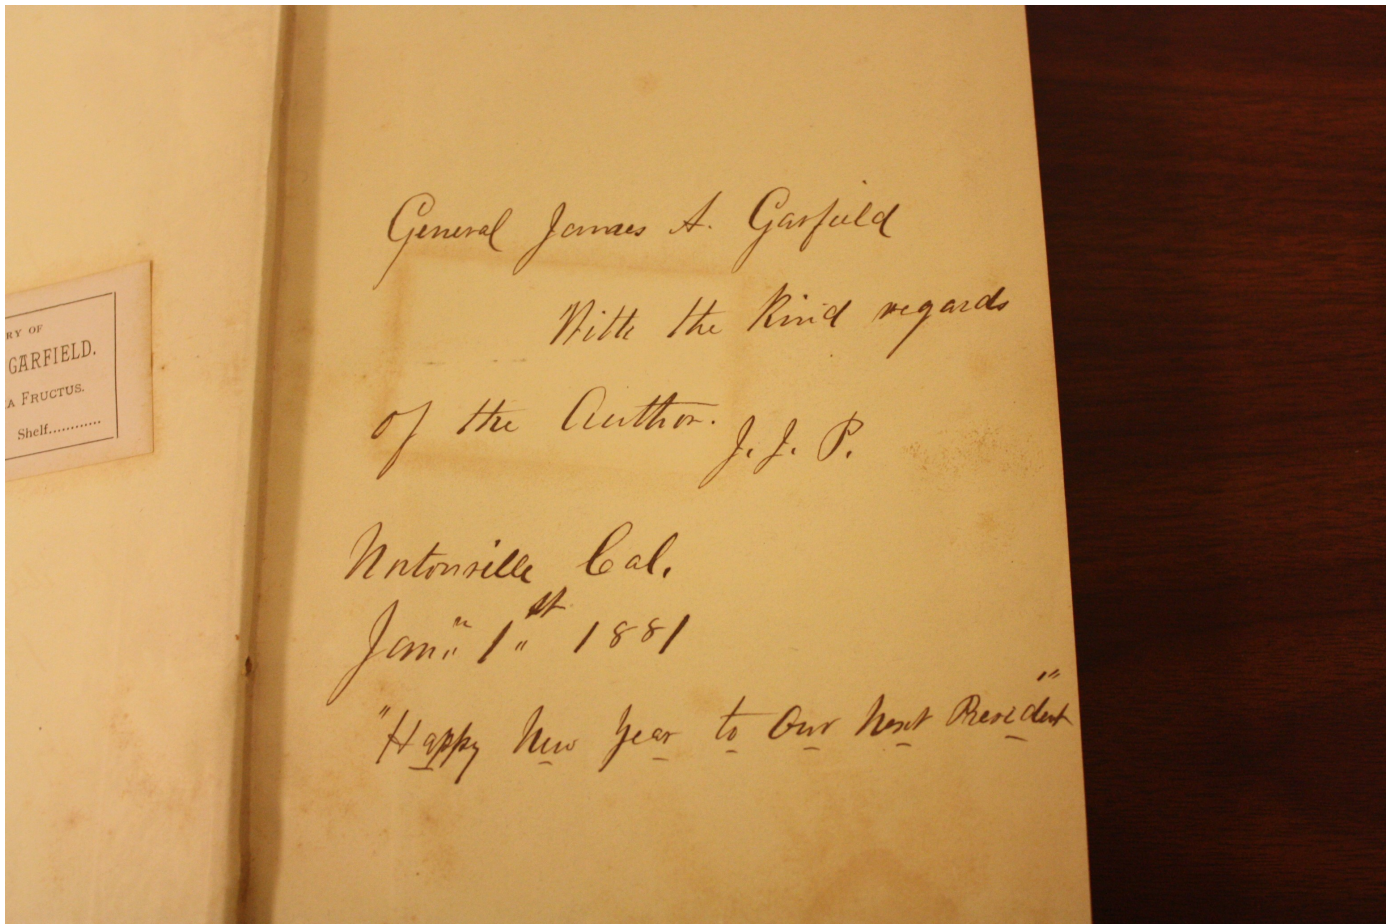 RY OF
GARFIELD.
A FRUCTUS.
Shelf............
General James A. Garfield
With the Kind regards
of the Author.
J. J. P.
Nortonville Cal.
Jan" 1st 1881
"Happy New Year to Our Next President"